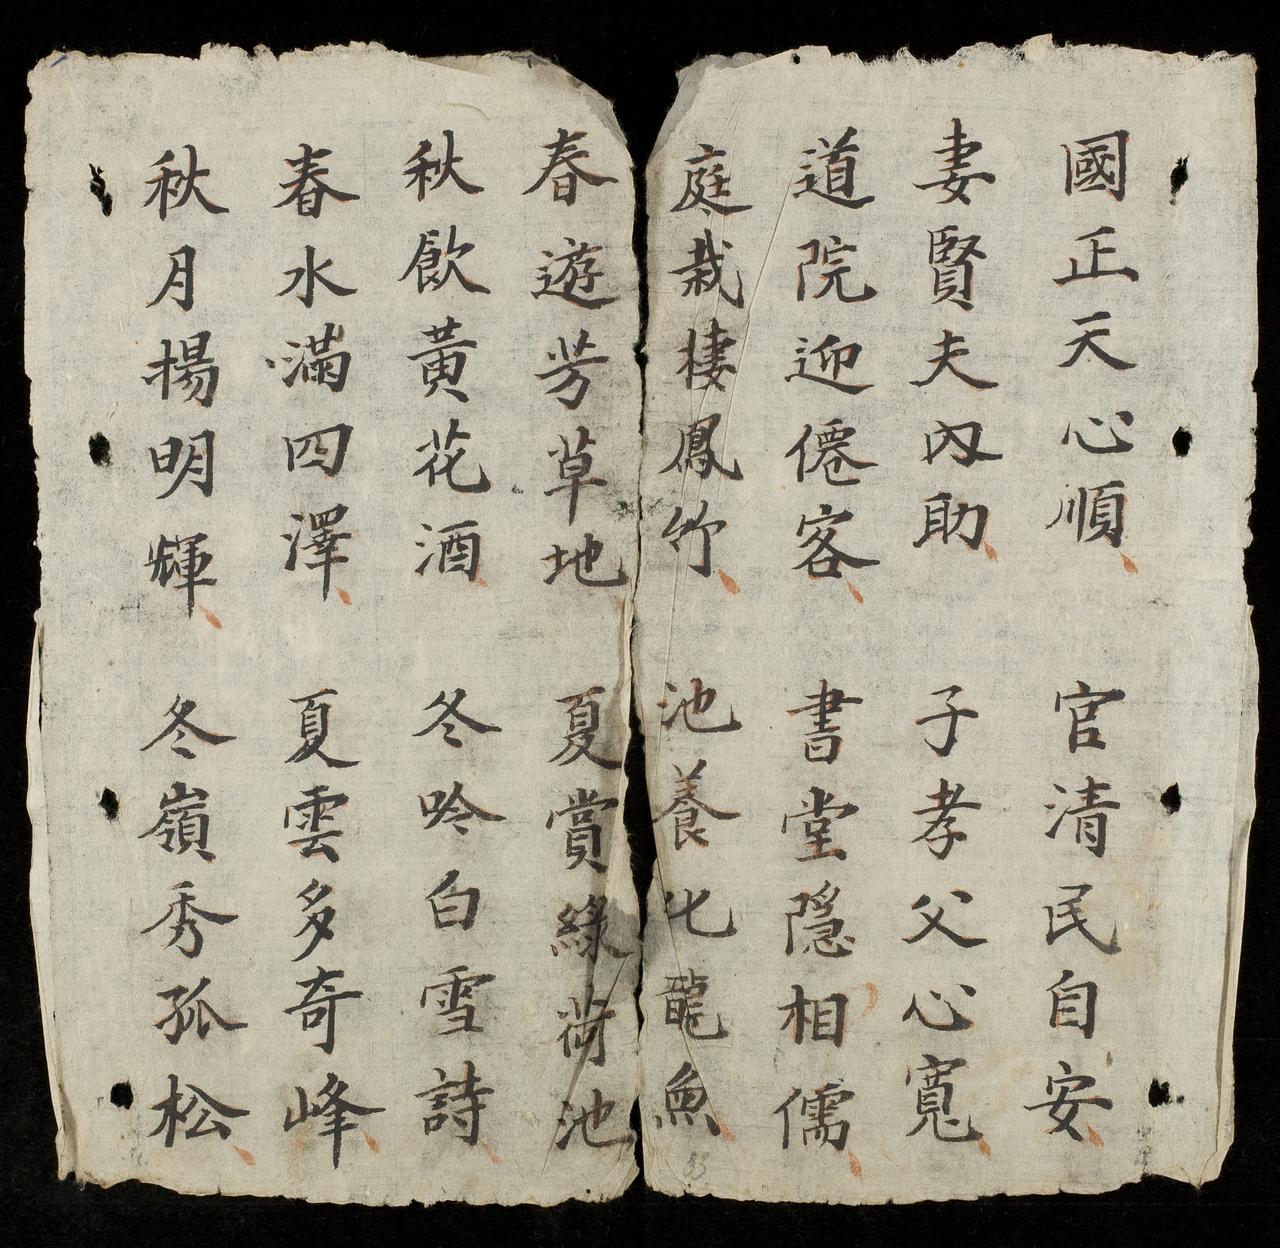 國正天心順　官清民自安
妻賢夫內助　子孝父心寬
道院迎僊客　書堂隱相儒
庭栽棲鳳竹　池養化龍魚
春遊芳草地　夏賞綠荷池
秋飲黃花酒　冬吟白雪詩
春水滿四澤　夏雲多奇峰
秋月揚明輝　冬嶺秀孤松